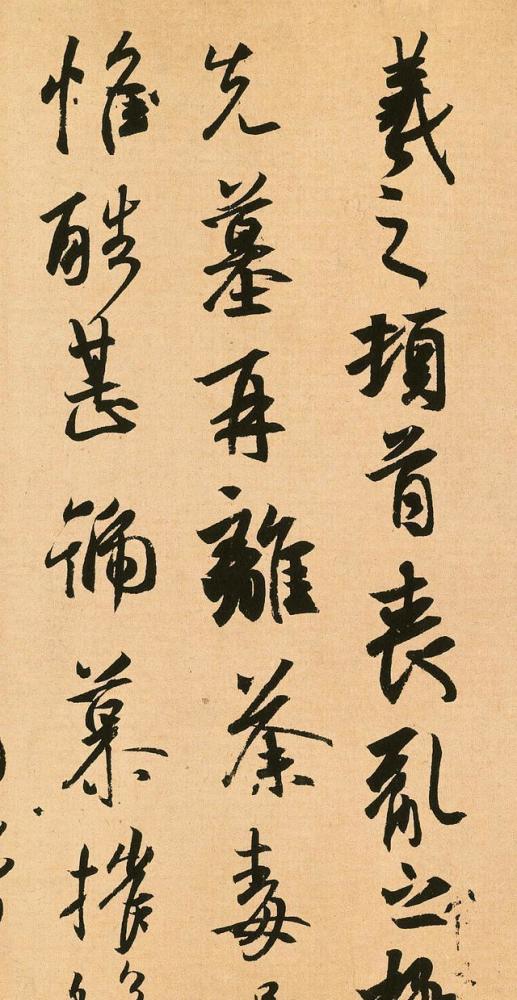 羲之頓首喪亂之極
先墓再離荼毒
惟酷甚號慕摧